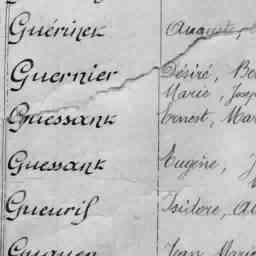 Guérinek Auguste,
Guernier Désiré, Be
Marie, Josep
Guessank Ernest, Mar
Guessank Eugène, J
Gueuris Isidore, Al
Jean Marie